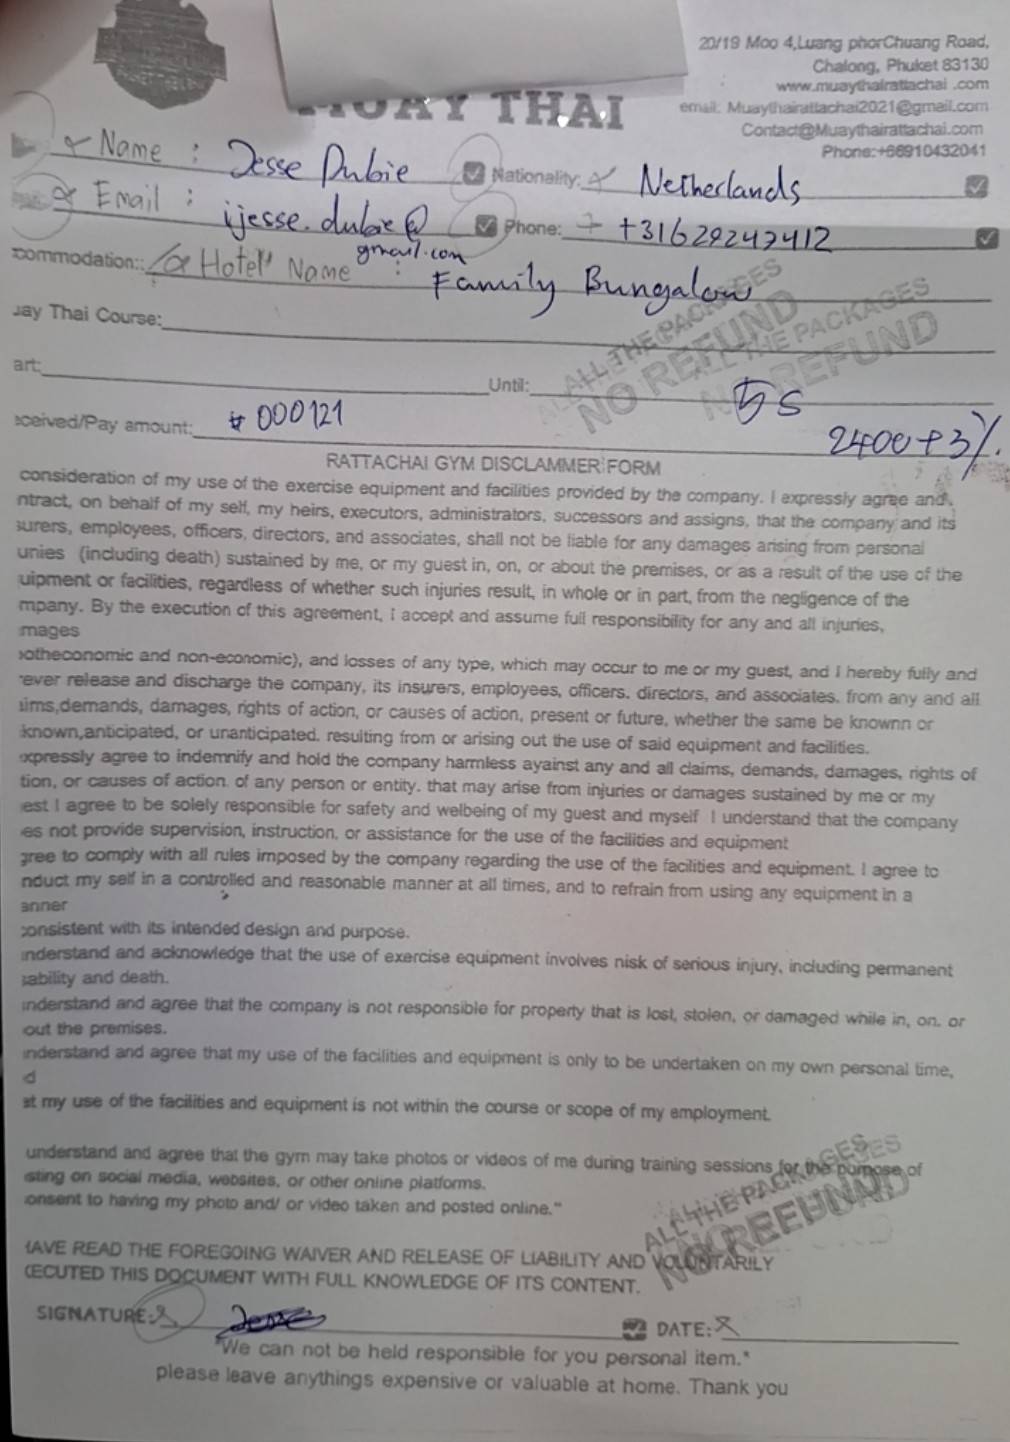 20/19 Moo 4,Luang phorChuang Road,
Chalong, Phuket 83130
www.muaythairattachai .com
email: Muaythairattachai2021@gmail.com
Contact@Muaythairattachai.com
Phone:+66910432041
MUAY THAI
Name : Jesse Dubie Nationality: Netherlands
Email : ijesse.dubie@gmail.com Phone: +31629247412
commodation:: Hotel Name : Family Bungalow
uay Thai Course:
ALL THE PACKAGES
NO REFUND
THE PACKAGES
NO REFUND
art: Until:
5s
ceived/Pay amount: # 000121
2400+3%.
RATTACHAI GYM DISCLAMMER FORM
consideration of my use of the exercise equipment and facilities provided by the company. I expressly agree and
ntract, on behalf of my self, my heirs, executors, administrators, successors and assigns, that the company and its
surers, employees, officers, directors, and associates, shall not be liable for any damages arising from personal
unies (including death) sustained by me, or my guest in, on, or about the premises, or as a result of the use of the
uipment or facilities, regardless of whether such injuries result, in whole or in part, from the negligence of the
mpany. By the execution of this agreement, I accept and assume full responsibility for any and all injuries,
mages
otheconomic and non-economic), and losses of any type, which may occur to me or my guest, and I hereby fully and
ever release and discharge the company, its insurers, employees, officers. directors, and associates. from any and all
aims,demands, damages, rights of action, or causes of action, present or future, whether the same be knownn or
known,anticipated, or unanticipated. resulting from or arising out the use of said equipment and facilities.
expressly agree to indemnify and hold the company harmless ayainst any and all claims, demands, damages, rights of
tion, or causes of action. of any person or entity. that may arise from injuries or damages sustained by me or my
est I agree to be solely responsible for safety and welbeing of my guest and myself I understand that the company
es not provide supervision, instruction, or assistance for the use of the facilities and equipment
gree to comply with all rules imposed by the company regarding the use of the facilities and equipment. I agree to
nduct my self in a controlled and reasonable manner at all times, and to refrain from using any equipment in a
anner
consistent with its intended design and purpose.
inderstand and acknowledge that the use of exercise equipment involves nisk of serious injury, including permanent
sability and death.
inderstand and agree that the company is not responsible for property that is lost, stolen, or damaged while in, on. or
out the premises.
inderstand and agree that my use of the facilities and equipment is only to be undertaken on my own personal time,
d
at my use of the facilities and equipment is not within the course or scope of my employment.
understand and agree that the gym may take photos or videos of me during training sessions for the purpose of
sting on social media, websites, or other online platforms.
onsent to having my photo and/ or video taken and posted online."
ALL THE PACKAGES
NO REFUND
HAVE READ THE FOREGOING WAIVER AND RELEASE OF LIABILITY AND VOLUNTARILY
ECUTED THIS DOCUMENT WITH FULL KNOWLEDGE OF ITS CONTENT.
SIGNATURE: DATE:
"We can not be held responsible for you personal item."
please leave anythings expensive or valuable at home. Thank you